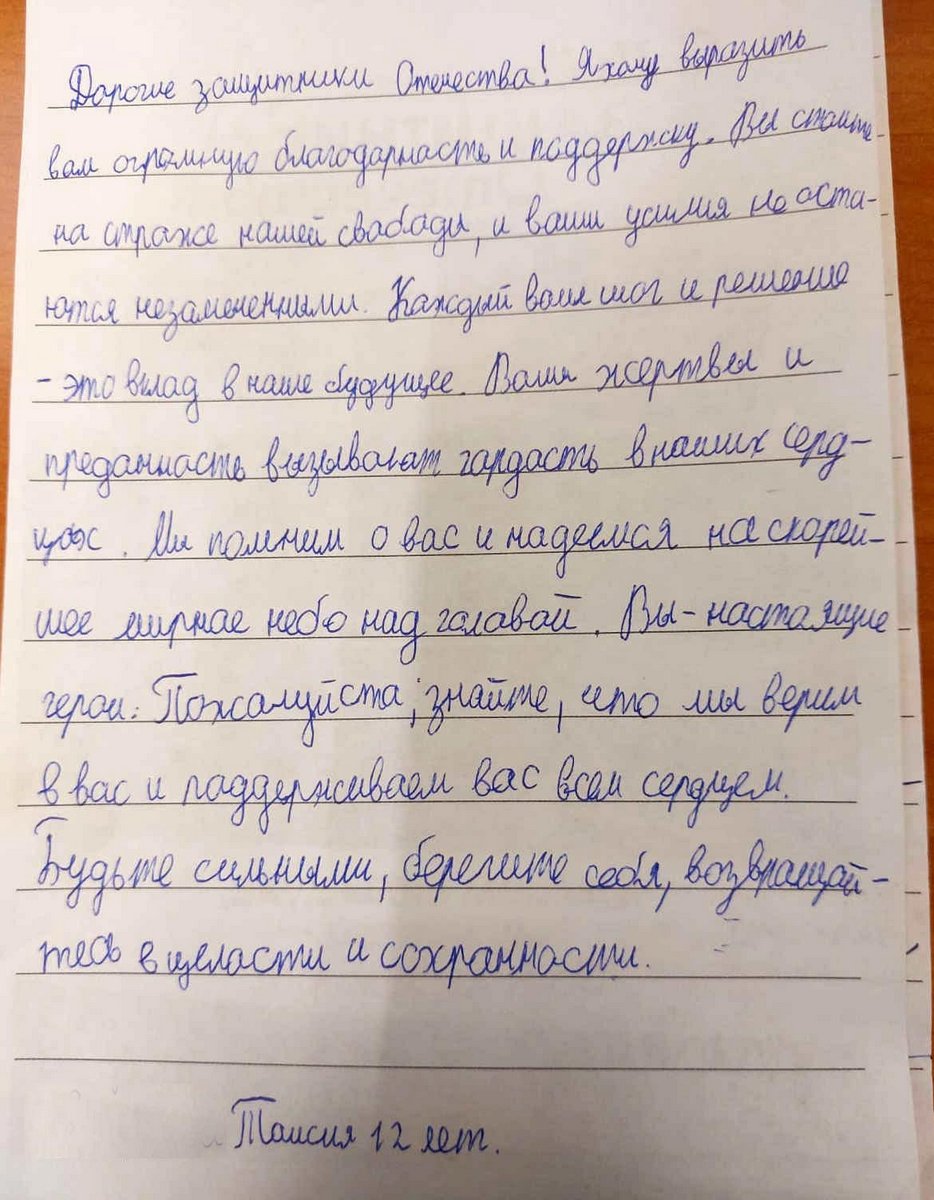 Дорогие защитники Отечества! Я хочу выразить
вам огромную благодарность и поддержку. Вы стоите
на страже нашей свабоды, и ваши усилия не оста-
ются незамеченными. Каждый ваш шаг и решение
- это вклад в наше будущее. Ваши жертвы и
преданность вызывают гардасть в наших серд-
цах. Мы помним о вас и надеемся на скорей-
шее мирнае небо над галавай. Вы - настаящие
герои. Пожалуйста, знайте, что мы верим
в вас и паддерживаем вас всем сердцем.
Будьте сильными, берегите себя, возвращай-
тесь в целасти и сохранности.
Таисия 12 лет.